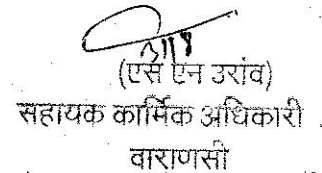 (एस एन उरांव)
सहायक कार्मिक अधिकारी
वाराणसी